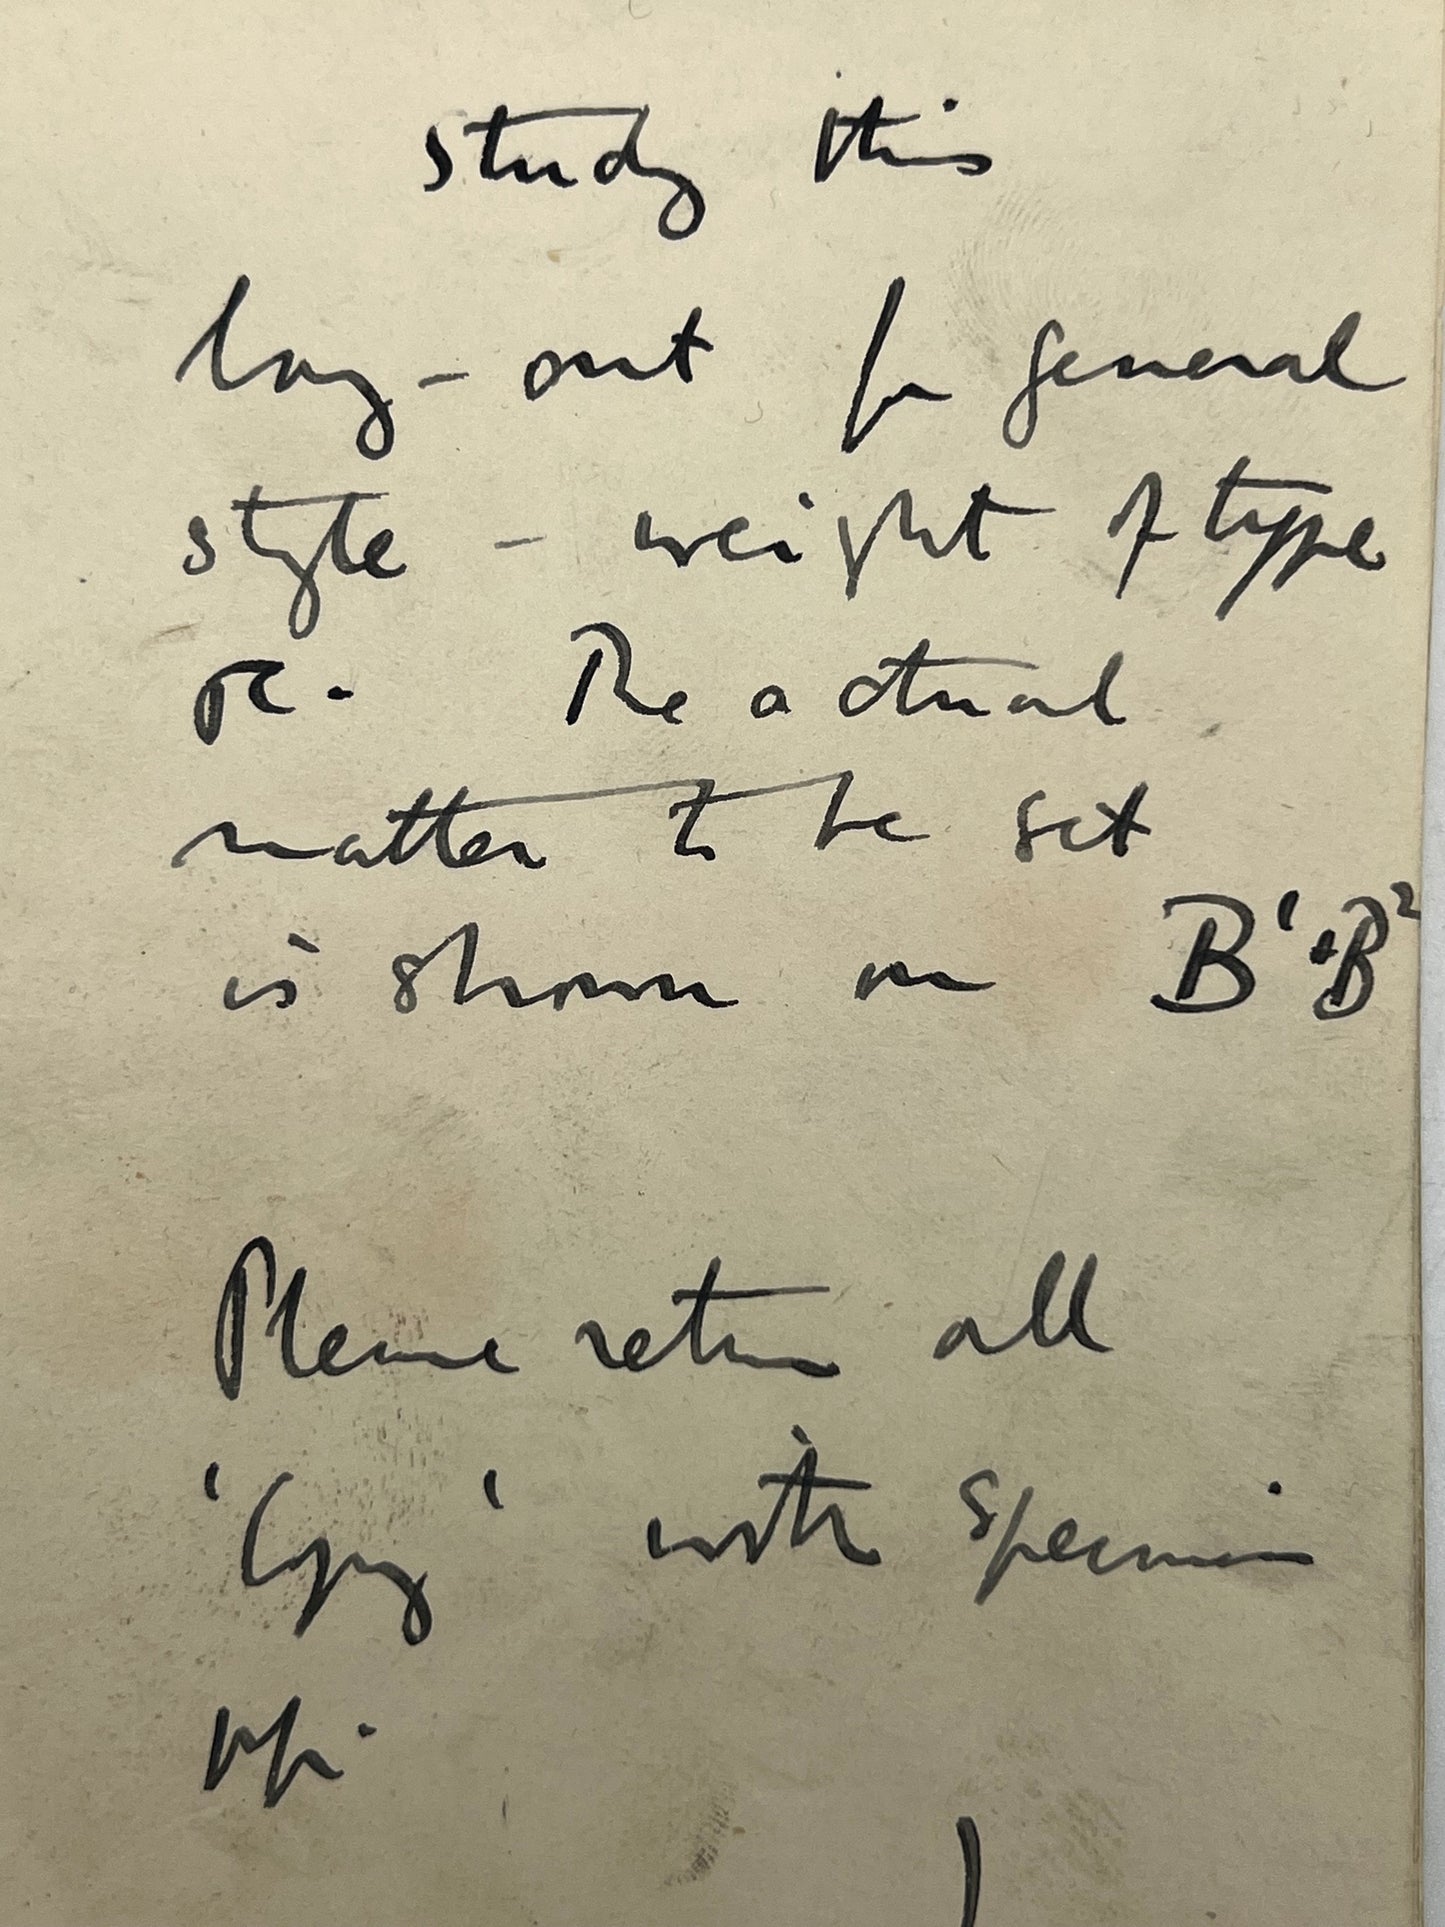 study this
lay-out for general
style - weight of type
etc. The actual
matter to be set
is shown on B¹ + B²
Please return all
'Copy' with specimen